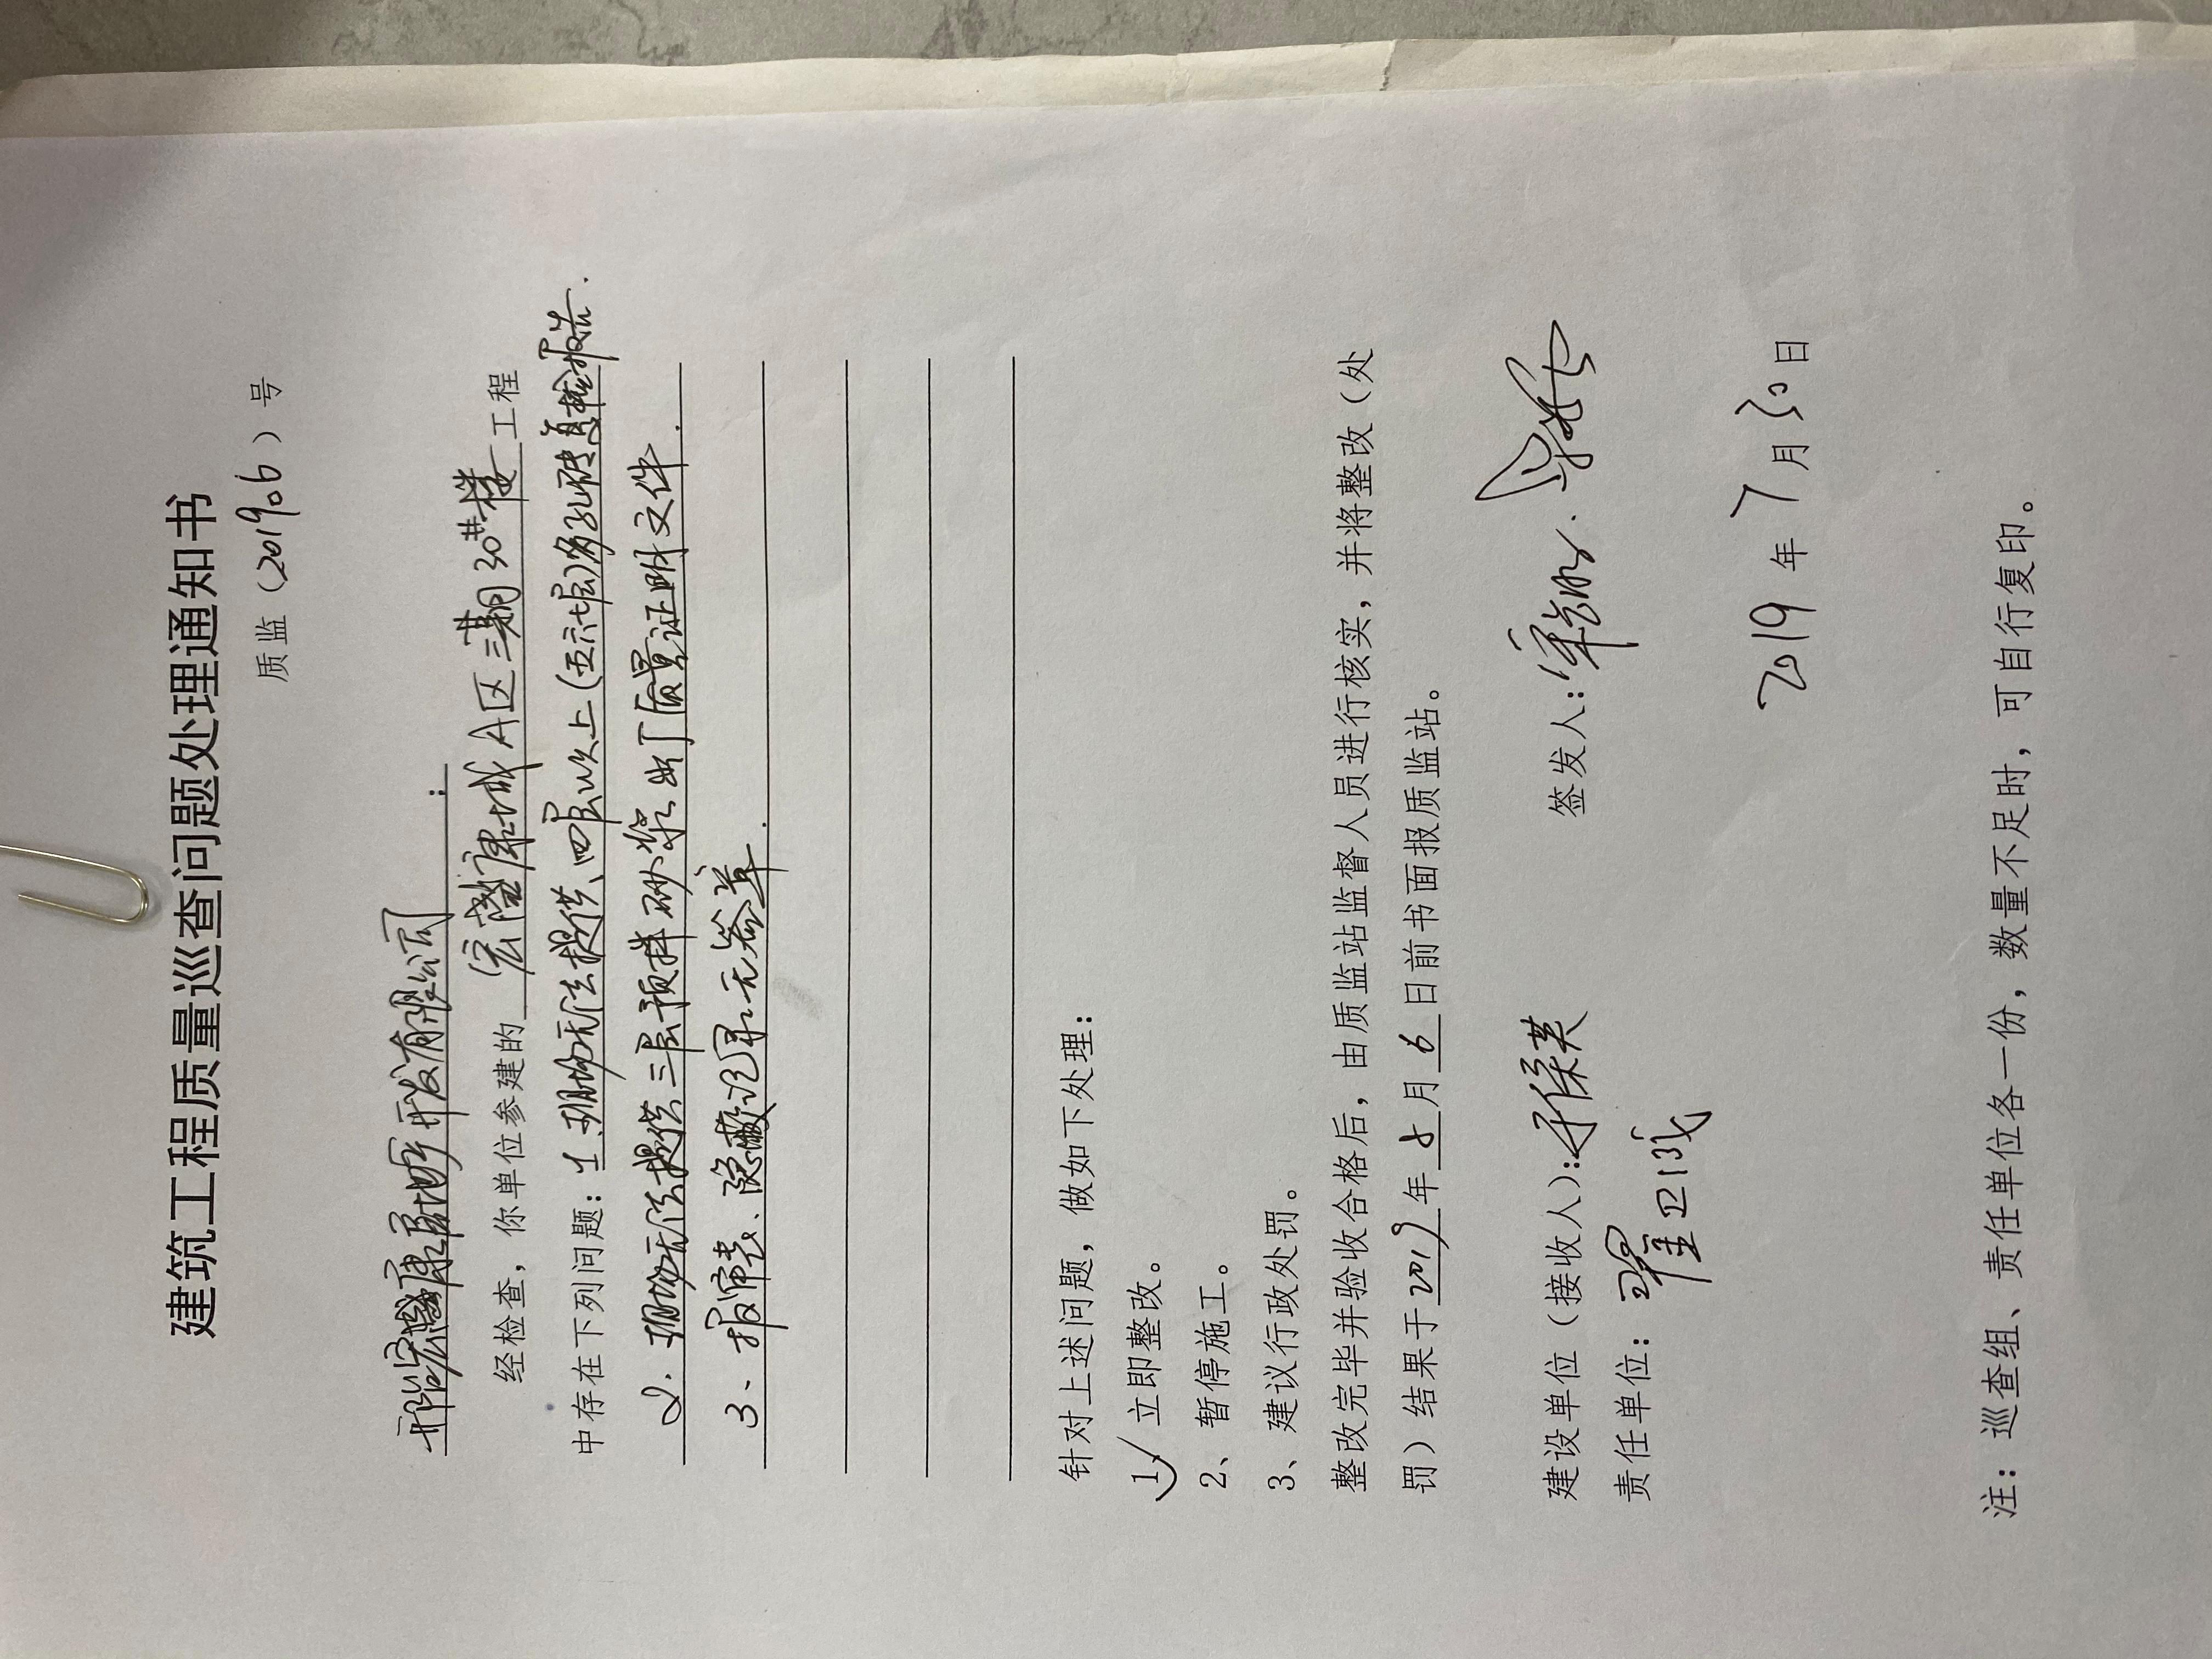 建筑工程质量巡查问题处理通知书
质监（2019.6）号
宏隆康居地产开发有限公司：
经检查，你单位参建的 宏隆康城A区三期30#楼 工程
中存在下列问题：1.现场无法提供四层以上（五六七层）多孔砖复检报告.
2.现场无法提供三层预拌砂浆出厂质量证明文件.
3、报审表、隐蔽记录无签章.
针对上述问题，做如下处理：
1、立即整改。
2、暂停施工。
3、建议行政处罚。
整改完毕并验收合格后，由质监站监督人员进行核实，并将整改（处
罚）结果于2019年8月6日前书面报质监站。
建设单位（接收人）： 签发人：
责任单位：
2019年7月30日
注：巡查组、责任单位各一份，数量不足时，可自行复印。